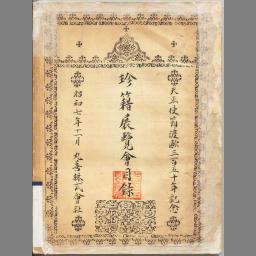 天正使節渡歐三百五十年記念
珍籍展覽會目錄
昭和七年十一月 丸善株式會社